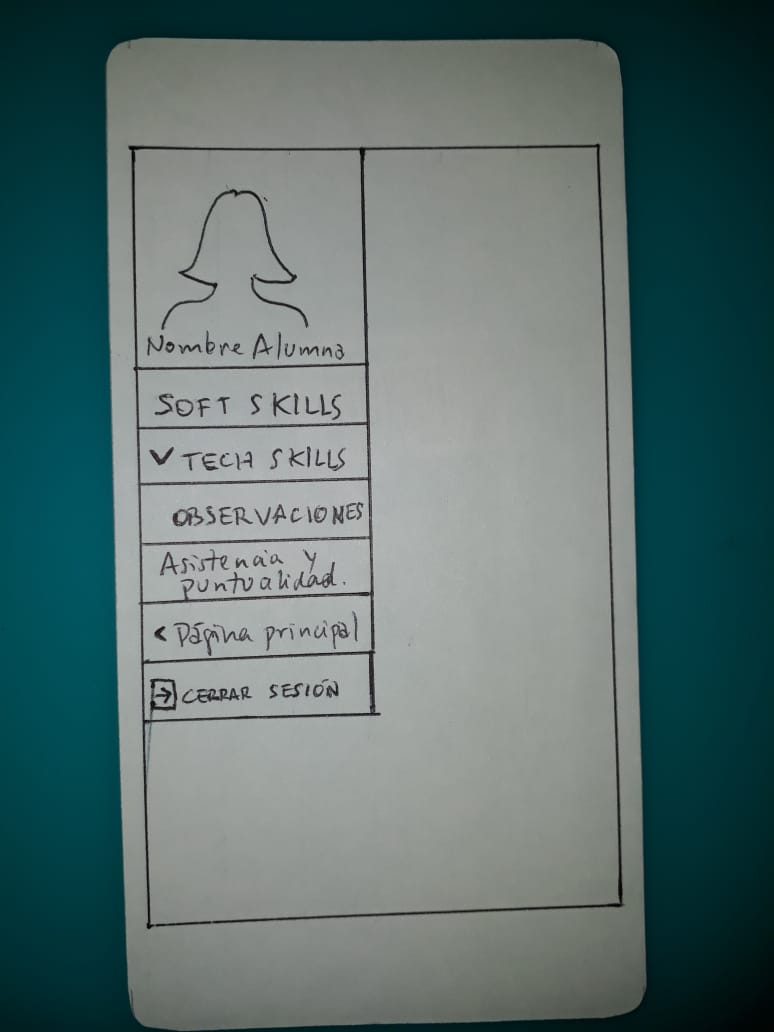 Nombre Alumna
SOFT SKILLS
TECH SKILLS
OBSERVACIONES
Asistencia y
puntualidad.
< Página principal
CERRAR SESIÓN